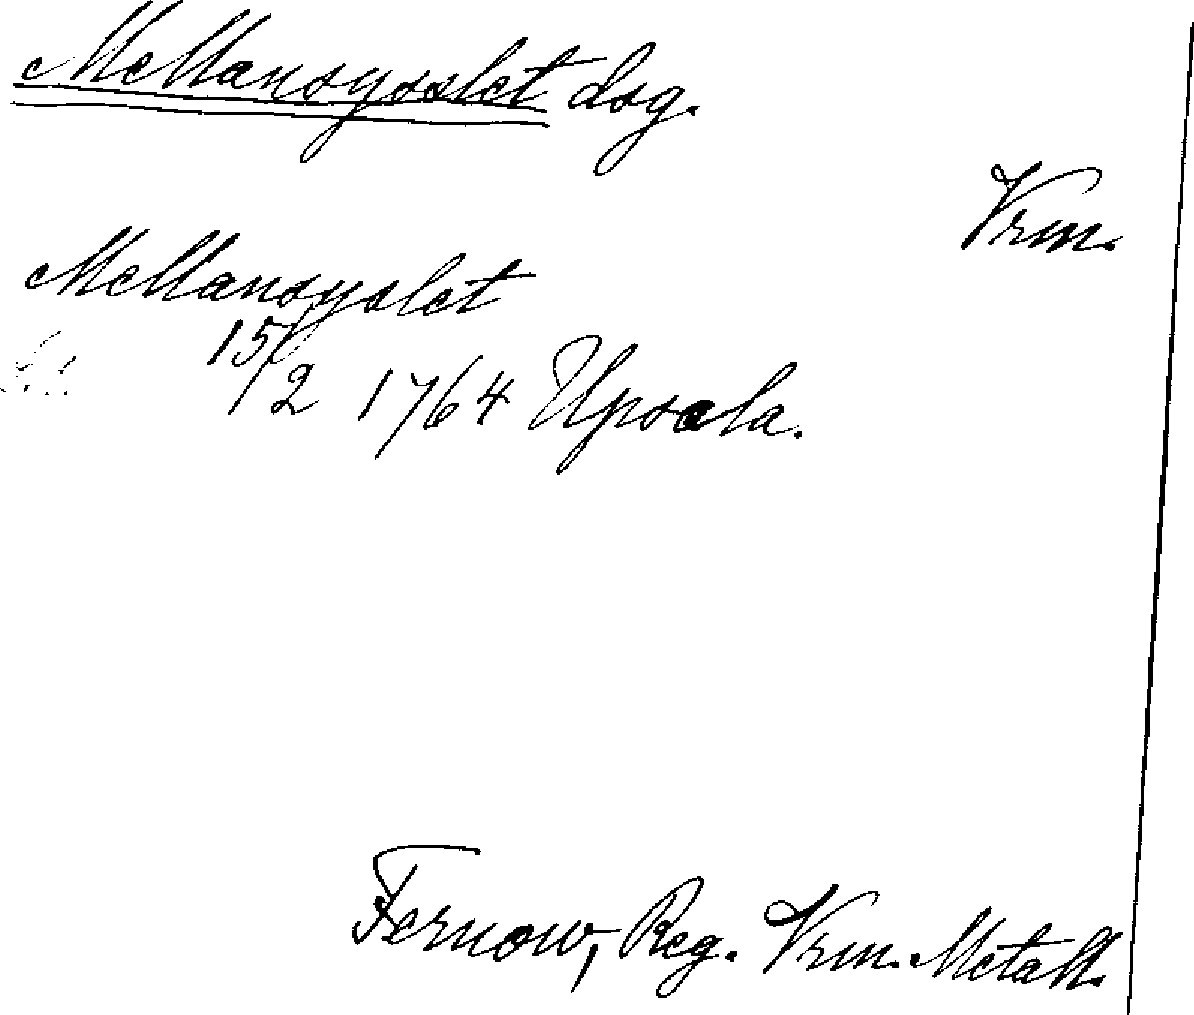 Mellansysslet dsg.
Vrm.
Mellansyslet
15/2 1764 Upsala.
Fernow, Reg. Vrm. Metall.